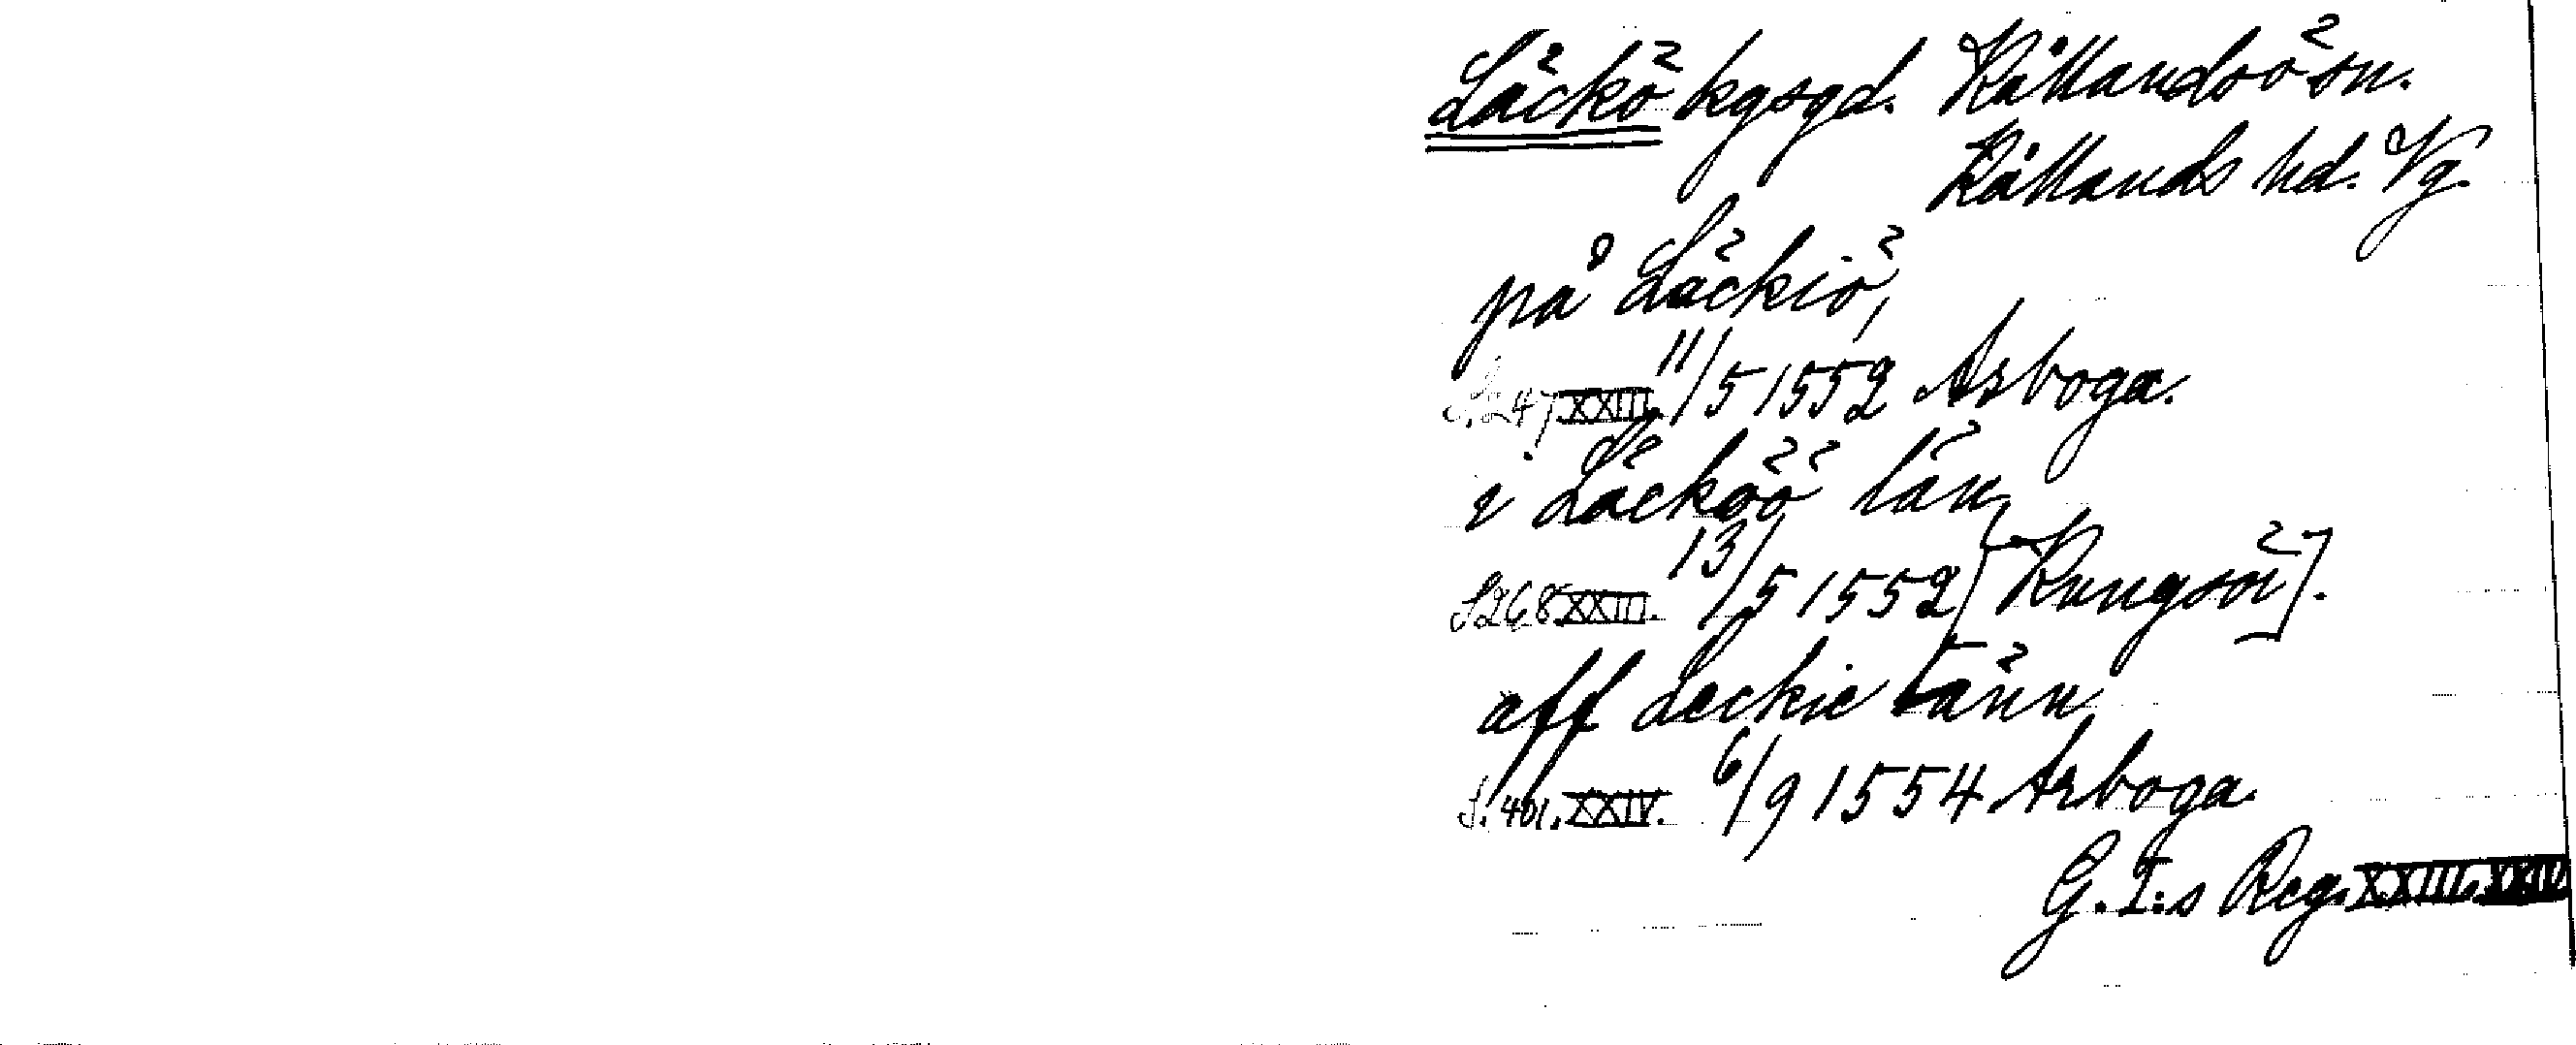 Läckö kgsgd. Kållandsö sn.
Kållands hd. Vg.
på Läckiö,
S. 247 XXIII. 11/5 1552 Arboga.
i Läcköö län,
S 268 XXIII. 13/5 1552 [Kungsör].
aff Leckie länn
S. 401. XXIV. 6/9 1554 Arboga.
G. I:s Reg. XXIII, XXIV